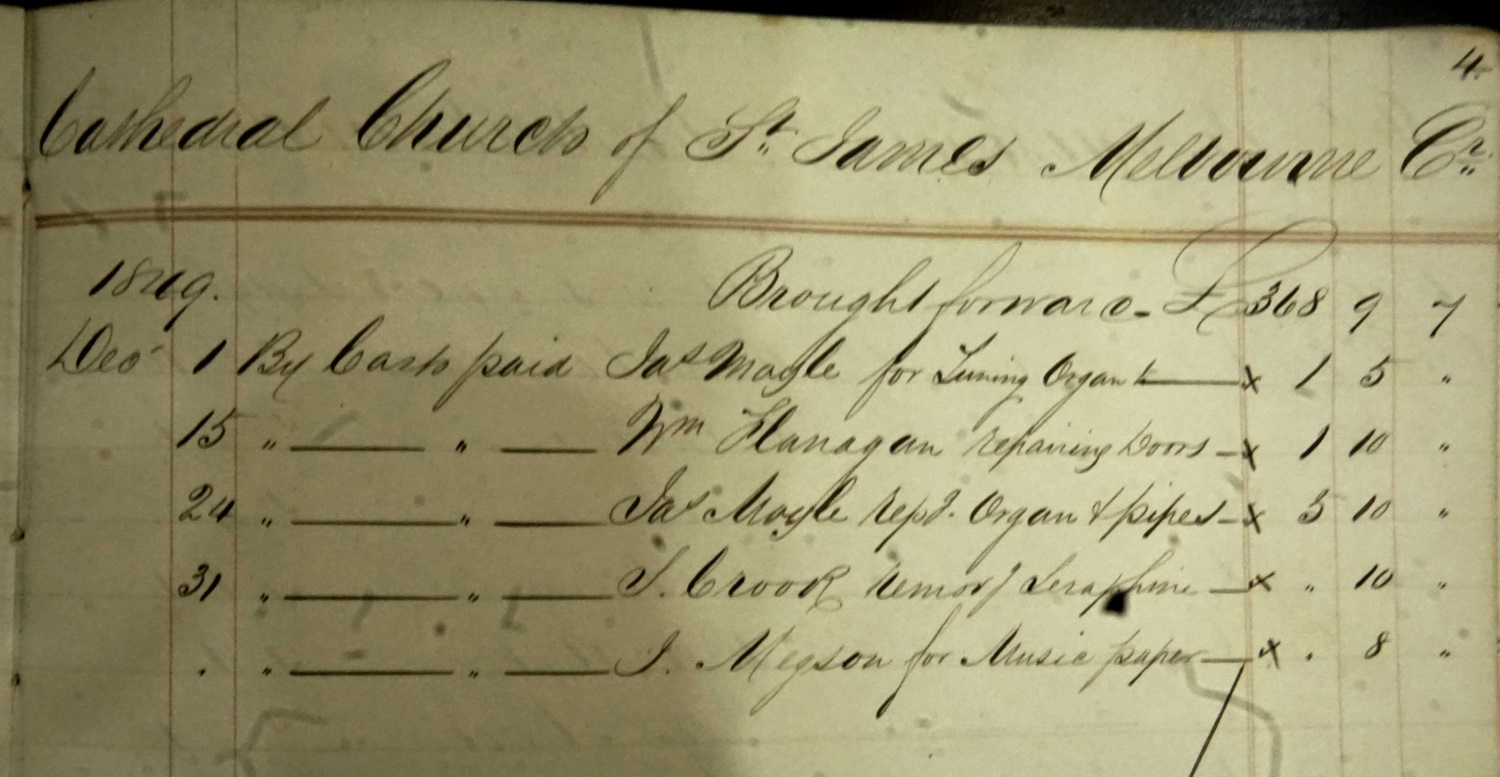 4.
Cathedral Church of St. James Melbourne Cr.
1849. Brought forward - £ 368 9 7
Dec 1 By Cash paid Jas Moyle for Tuning Organ x 1 5 "
15 " — " — Wm Flanagan repairing Doors - x 1 10 "
24 " — " — Jas Moyle repg. Organ & pipes - x 5 10 "
31 " — " — Crook Seraphine — x " 10 "
. " — " — J. Megson for Music paper — x . 8 "